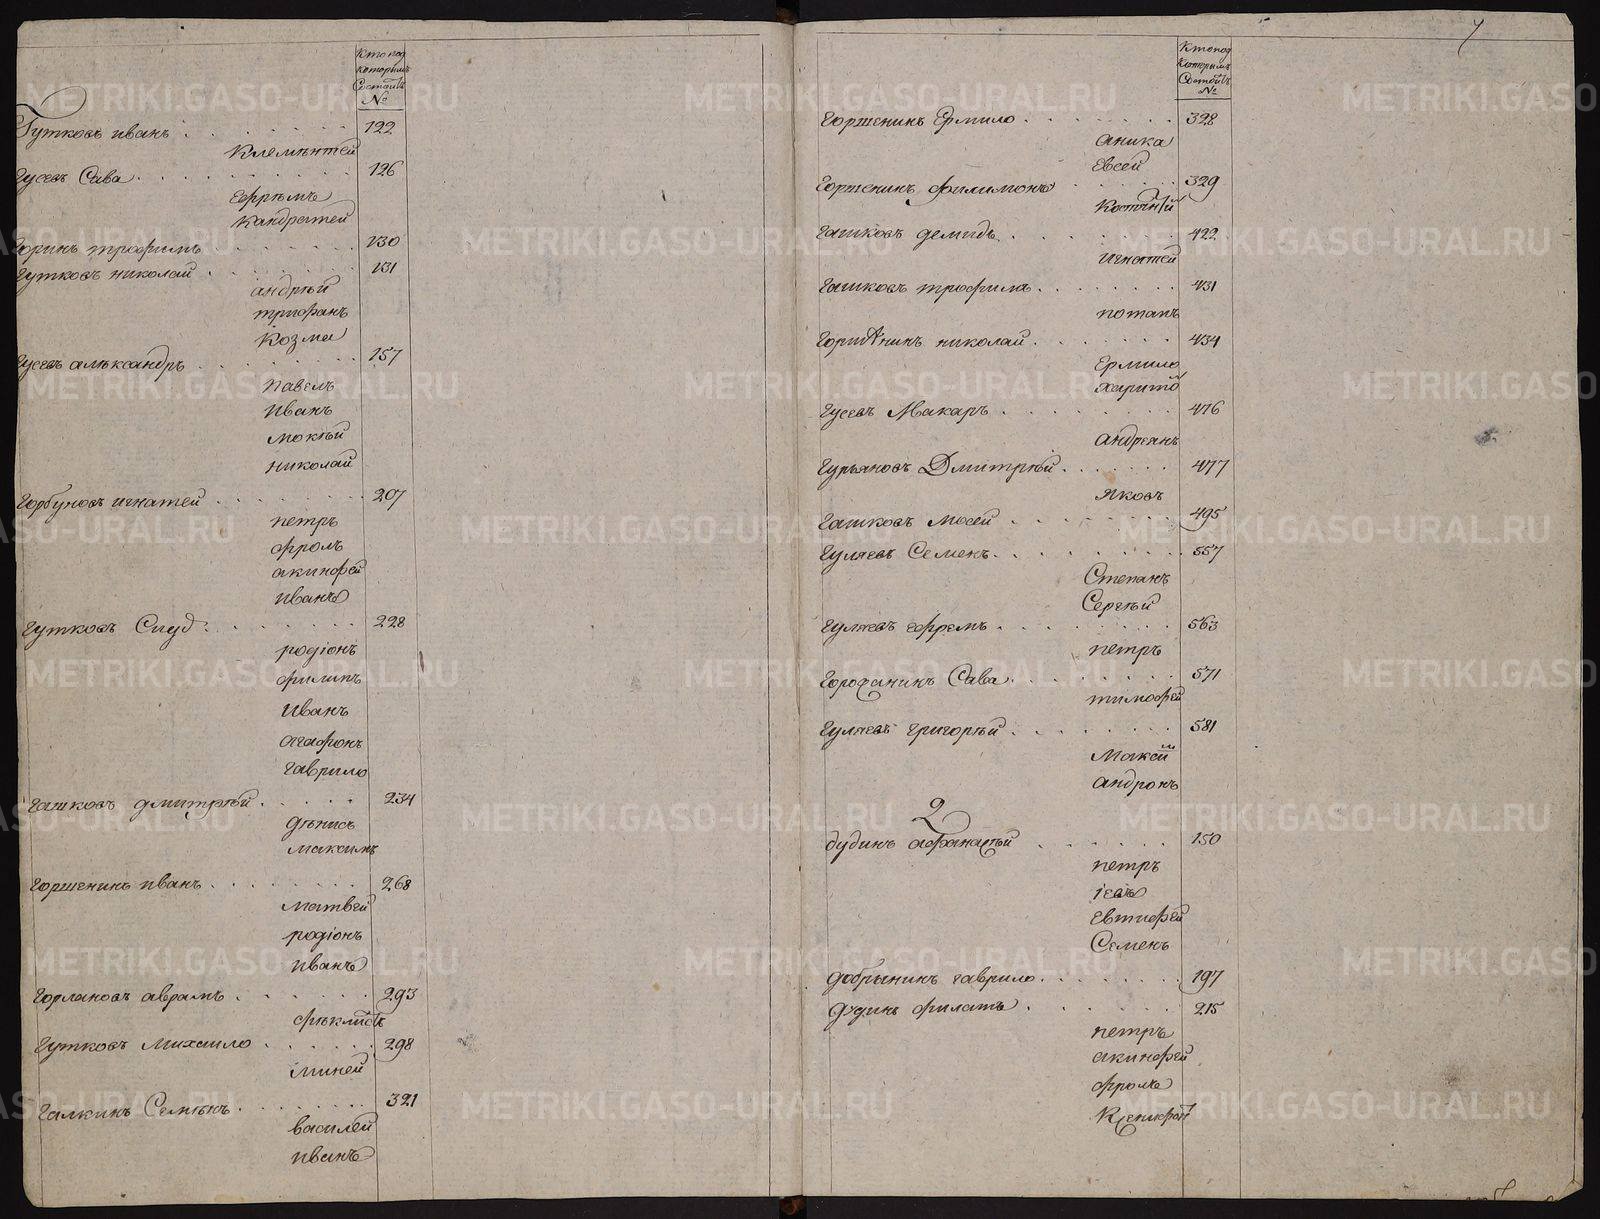 Кто под
которымъ
Состоитъ
№
Гутковъ иванъ 122
Клементей
Гусевъ Сава 126
ефремъ
Кандратей
Горинъ трофимъ 130
Гутковъ николай 131
андрѣй
трифанъ
Козма
Гусевъ алѣксандръ 157
павелъ
Иванъ
мокѣй
николай
Горбуновъ игнатей 207
петръ
фролъ
акинфей
иванъ
Гутковъ Сиуд 228
родіонъ
филипъ
Иванъ
агафонъ
гаврило
Гашковъ дмитрѣй 234
дѣнисъ
максимъ
Горшенинъ иванъ 268
матвей
родіонъ
иванъ
Горлановъ аврамъ 293
фѣклистъ
Гутковъ Михаило 298
іминей
Галкинъ Семѣнъ 321
василей
иванъ
7
Кто под
Которымъ
Состоитъ
№
Горшенинъ Ермило 328
аника
Евсей
Горшенинъ филимонъ 329
Гашковъ демидъ 422
игнатей
Гашковъ трофима 431
потапъ
николай 434
Ермило
харито
Гусевъ Макаръ 476
андреянъ
Гурьяновъ Дмитрѣй 477
яковъ
Гашковъ мосей 495
Гуляевъ Семенъ 557
Степанъ
Сергѣй
Гуляевъ ефремъ 563
петръ
Сава 571
тимофей
Гуляевъ григорѣй 581
Максим
андронъ
Д
дудинъ афанасѣй 150
петръ
іевъ
Евтифей
Семенъ
добрынинъ гаврило 197
дудинъ филатъ 215
петръ
акинфей
фролъ